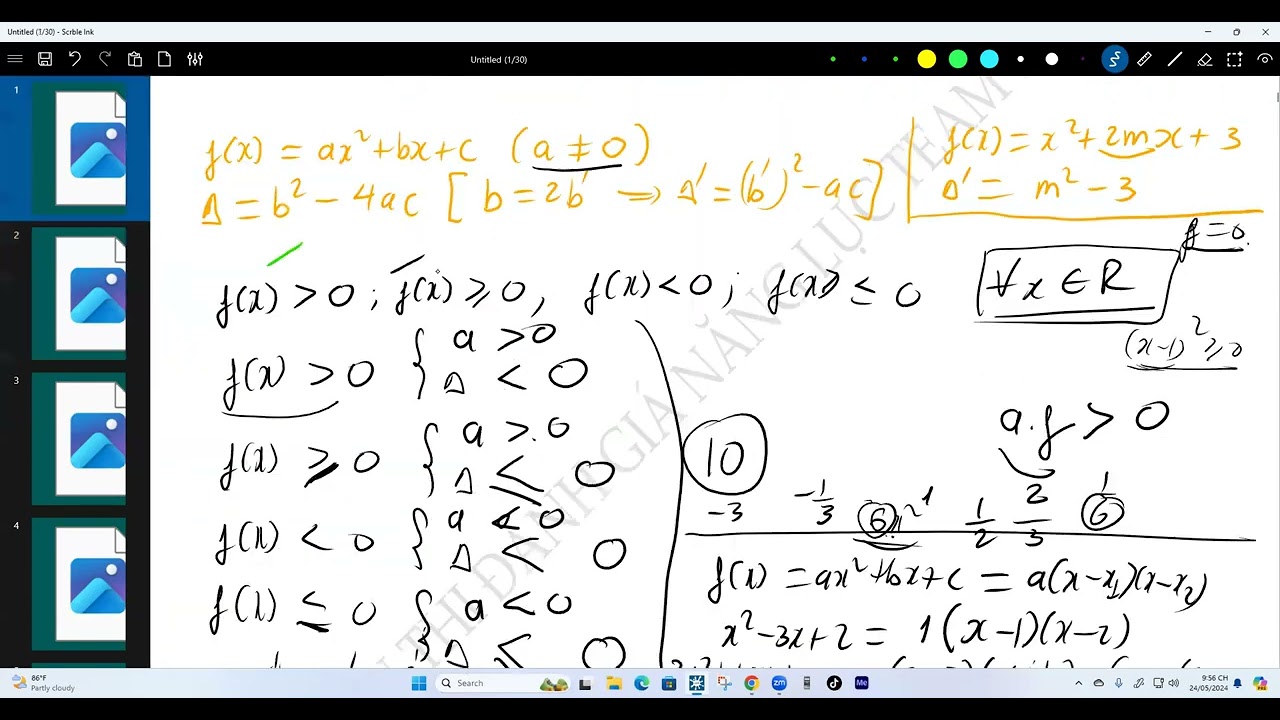 Untitled (1/30) - Scrble Ink
Untitled (1/30)
1
2
3
4
f(x) = ax²+bx+c (a ≠ 0)
Δ = b² - 4ac [ b = 2b' ⟹ Δ' = (b')² - ac ]
f(x) = x²+2mx + 3
Δ' = m² - 3
f(x) > 0 ; f(x) ⩾ 0 , f(x) < 0 ; f(x) ≤ 0
∀x ∈ R
f = 0
(x-1)² ⩾ 0
f(x) > 0 { a > 0
Δ < 0
f(x) ⩾ 0 { a > 0
Δ ≤ 0
f(x) < 0 { a < 0
Δ < 0
f(x) ≤ 0 { a < 0
Δ ≤ 0
a.f > 0
10
-3 -1/3 6 1/2 2/3 1/6
f(x) = ax²+bx+c = a(x-x₁)(x-x₂)
x²-3x+2 = 1(x-1)(x-2)
THI ĐÁNH GIÁ NĂNG LỰC TEAM
86°F
Partly cloudy
Search
zm
Me
9:56 CH
24/05/2024